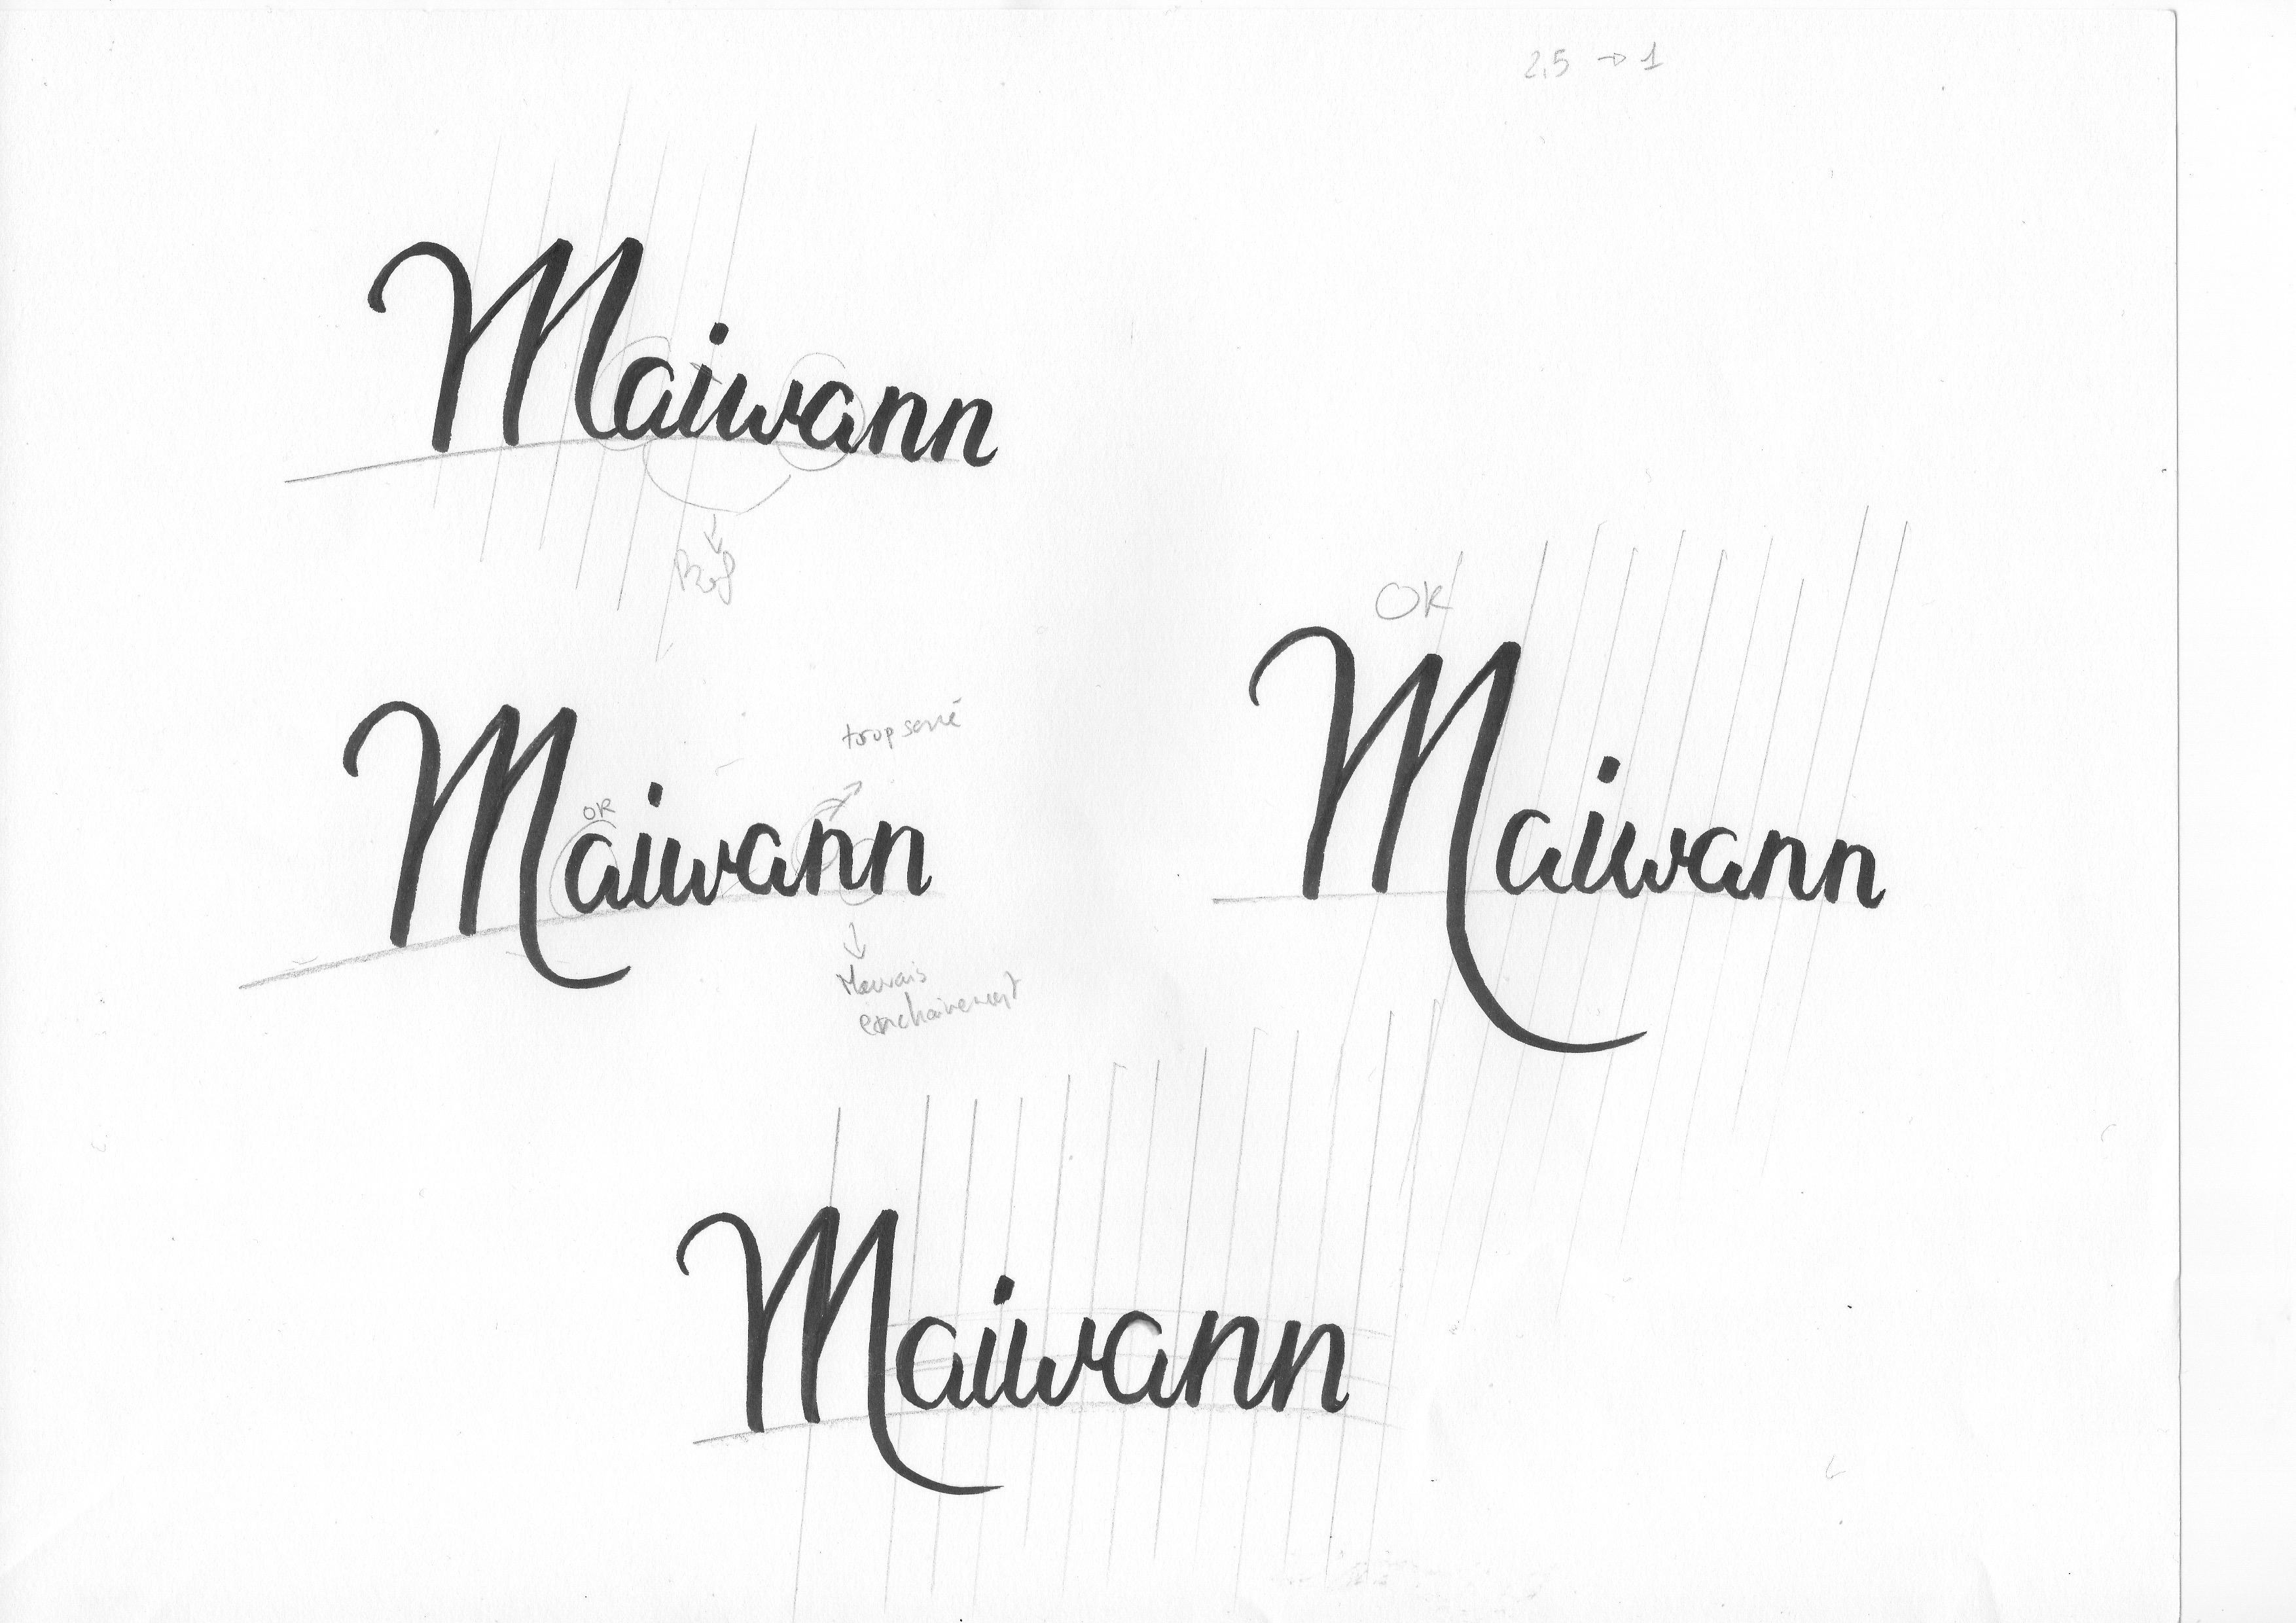 2,5 → 1
Maiwann
Bof
OK
Maiwann
trop serré
OK
Maiwann
Mauvais
enchainement
Maiwann